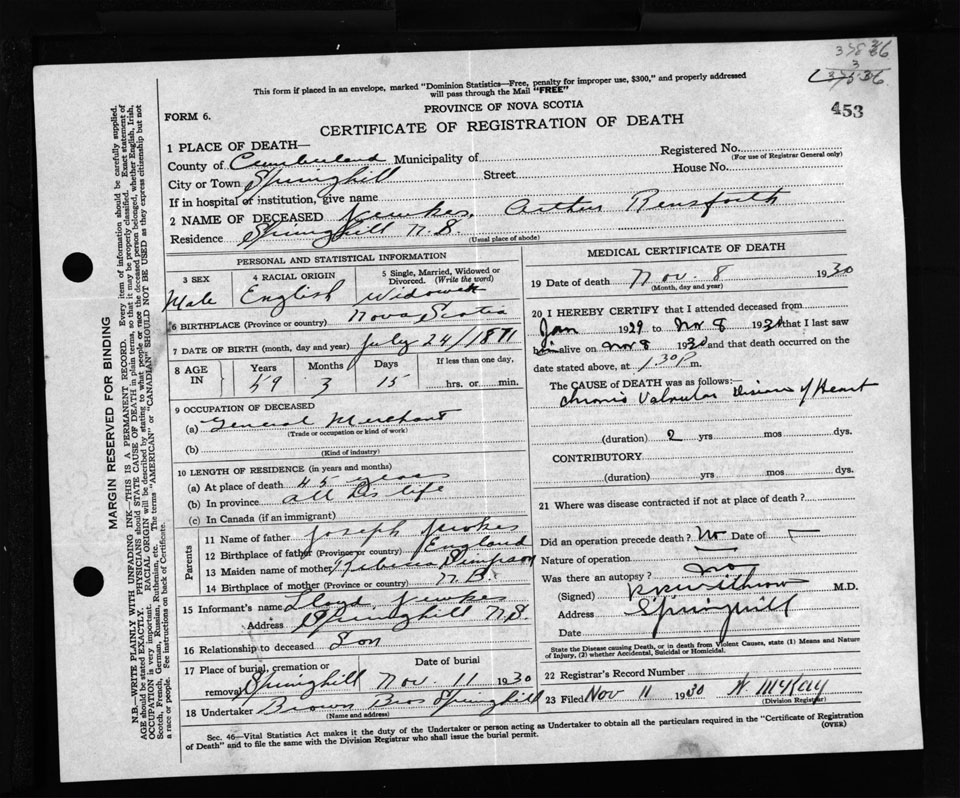 3 5/8 36
3
C 3/5 36
This form if placed in an envelope, marked "Dominion Statistics—Free, penalty for improper use, $300," and properly addressed
will pass through the Mail "FREE"
PROVINCE OF NOVA SCOTIA
453
FORM 6.
CERTIFICATE OF REGISTRATION OF DEATH
1 PLACE OF DEATH—
Registered No.
(For use of Registrar General only)
County of Cumberland Municipality of
City or Town Springhill Street House No.
If in hospital or institution, give name
2 NAME OF DECEASED Jewkes, Arthur Rensforth
Residence Springhill N.S. (Usual place of abode)
PERSONAL AND STATISTICAL INFORMATION
3 SEX Male
4 RACIAL ORIGIN English
5 Single, Married, Widowed or Divorced. (Write the word)
Widower
6 BIRTHPLACE (Province or country) Nova Scotia
7 DATE OF BIRTH (month, day and year) July 24/1871
8 AGE IN Years 59 Months 3 Days 15 If less than one day, hrs. or min.
9 OCCUPATION OF DECEASED
(a) General Merchant
(Trade or occupation or kind of work)
(b)
(Kind of industry)
10 LENGTH OF RESIDENCE (in years and months)
(a) At place of death 45 years
(b) In province all his life
(c) In Canada (if an immigrant)
Parents
11 Name of father Joseph Jewkes
12 Birthplace of father (Province or country) England
13 Maiden name of mother Simpson
14 Birthplace of mother (Province or country) N.B.
15 Informant's name Lloyd Jewkes
Address Springhill N.S.
16 Relationship to deceased Son
17 Place of burial, cremation or removal Springhill
Date of burial Nov. 11 1930
18 Undertaker Brown Bros Springhill
(Name and address)
MEDICAL CERTIFICATE OF DEATH
19 Date of death Nov. 8 1930
(Month, day and year)
20 I HEREBY CERTIFY that I attended deceased from
Jan 1929 to Nov 8 1930 that I last saw
him alive on Nov 8 1930 and that death occurred on the
date stated above, at 1.30 P m.
The CAUSE of DEATH was as follows:—
Chronic Valvular Disease of Heart
(duration) 2 yrs mos dys.
CONTRIBUTORY
(duration) yrs mos dys.
21 Where was disease contracted if not at place of death?
Did an operation precede death? No Date of
Nature of operation
Was there an autopsy? No
(Signed) Withrow M.D.
Address Springhill
Date
State the Disease causing Death, or in death from Violent Causes, state (1) Means and Nature
of Injury, (2) whether Accidental, Suicidal or Homicidal.
22 Registrar's Record Number
23 Filed Nov 11 1930 N. McKay
(Division Registrar)
Sec. 46—Vital Statistics Act makes it the duty of the Undertaker or person acting as Undertaker to obtain all the particulars required in the "Certificate of Registration
of Death" and to file the same with the Division Registrar who shall issue the burial permit.
(OVER)
MARGIN RESERVED FOR BINDING
N.B.—WRITE PLAINLY WITH UNFADING INK—THIS IS A PERMANENT RECORD. Every item of information should be carefully supplied.
AGE should be stated EXACTLY. PHYSICIANS should STATE CAUSE OF DEATH in plain terms, so that it may be properly classified. Exact statement of
OCCUPATION is very important. RACIAL ORIGIN will be described by stating to what people or race the deceased person belonged, whether English, Irish,
Scotch, French, German, Russian, Ruthenian, etc. The terms "AMERICAN" or "CANADIAN" SHOULD NOT BE USED as they express citizenship but not
a race or people. See instructions on back of Certificate.